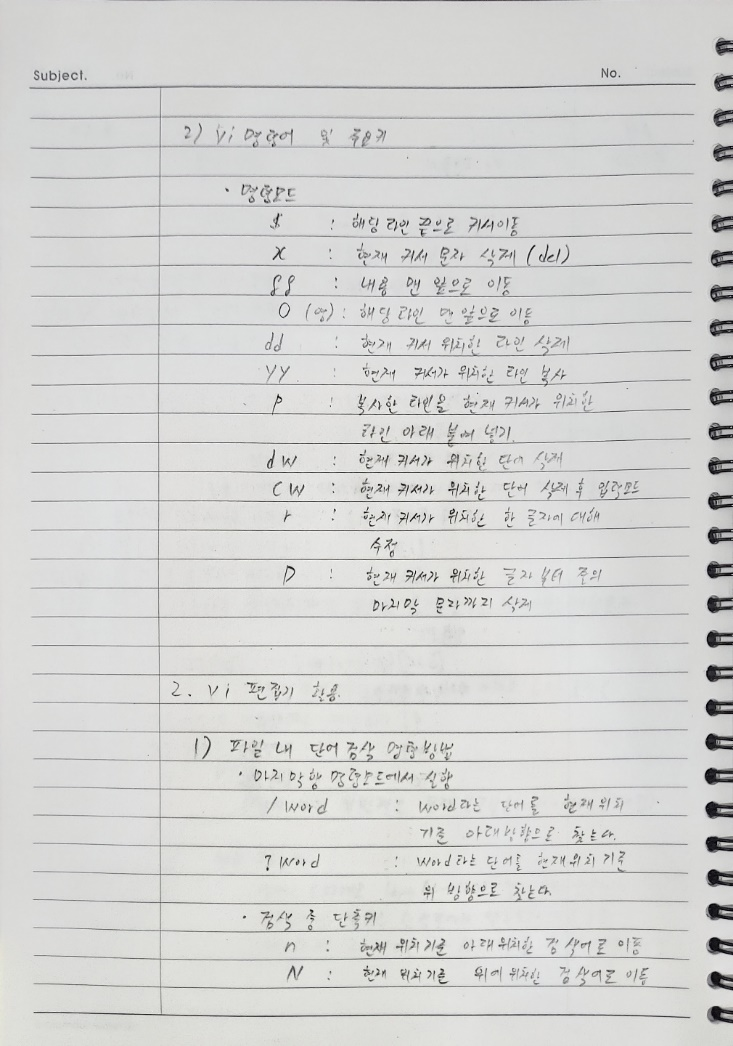 Subject. No.
2) Vi 명령어 및 주요키
· 명령모드
$ : 해당 라인 끝으로 커서이동
x : 현재 커서 문자 삭제 (del)
gg : 내용 맨 앞으로 이동
0 (영) : 해당 라인 맨 앞으로 이동
dd : 현재 커서 위치한 라인 삭제
yy : 현재 커서가 위치한 라인 복사
p : 복사한 라인을 현재 커서가 위치한
라인 아래 붙여 넣기.
dw : 현재 커서가 위치한 단어 삭제
cw : 현재 커서가 위치한 단어 삭제 후 입력모드
r : 현재 커서가 위치한 한 글자에 대해
수정
D : 현재 커서가 위치한 글자부터 줄의
마지막 문자까지 삭제
2. Vi 편집기 활용
1) 파일 내 단어 검색 명령방법
· 마지막행 명령모드에서 실행
/word : word라는 단어를 현재위치
기준 아래방향으로 찾는다.
?word : word라는 단어를 현재위치 기준
위 방향으로 찾는다.
· 검색 중 단축키
n : 현재 위치기준 아래위치한 검색어로 이동
N : 현재 위치기준 위에 위치한 검색어로 이동